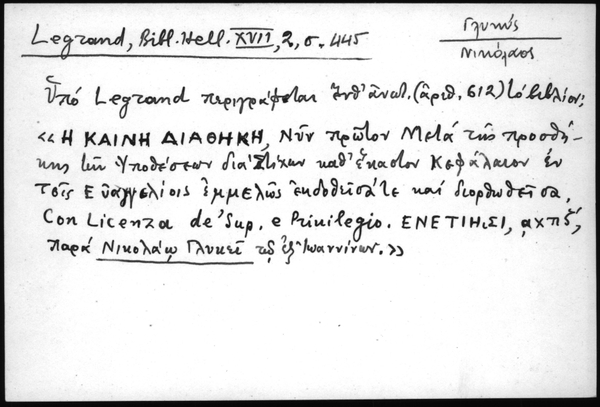 Legrand, Bibl. Hell. XVII, 2, σ. 445
Γλυκύς
Νικόλαος
Ὑπό Legrand περιγράφεται ἐνθ' ἀνωτ. (ἀριθ. 612) τό βιβλίον:
«Η ΚΑΙΝΗ ΔΙΑΘΗΚΗ, Νῦν πρῶτον Μετά τῆς προσθή-
κης τῶν Ὑποθέσεων διά Στίχων καθ' ἕκαστον Κεφάλαιον ἐν
Τοῖς Εὐαγγελίοις ἐμμελῶς ἐκδοθεῖσά τε καί διορθωθεῖσα,
Con Licenza de' Sup. e Privilegio. ΕΝΕΤΙΗ,ΣΙ, αχπξ,
παρά Νικολάῳ Γλυκεῖ τῷ ἐξ Ἰωαννίνων.»